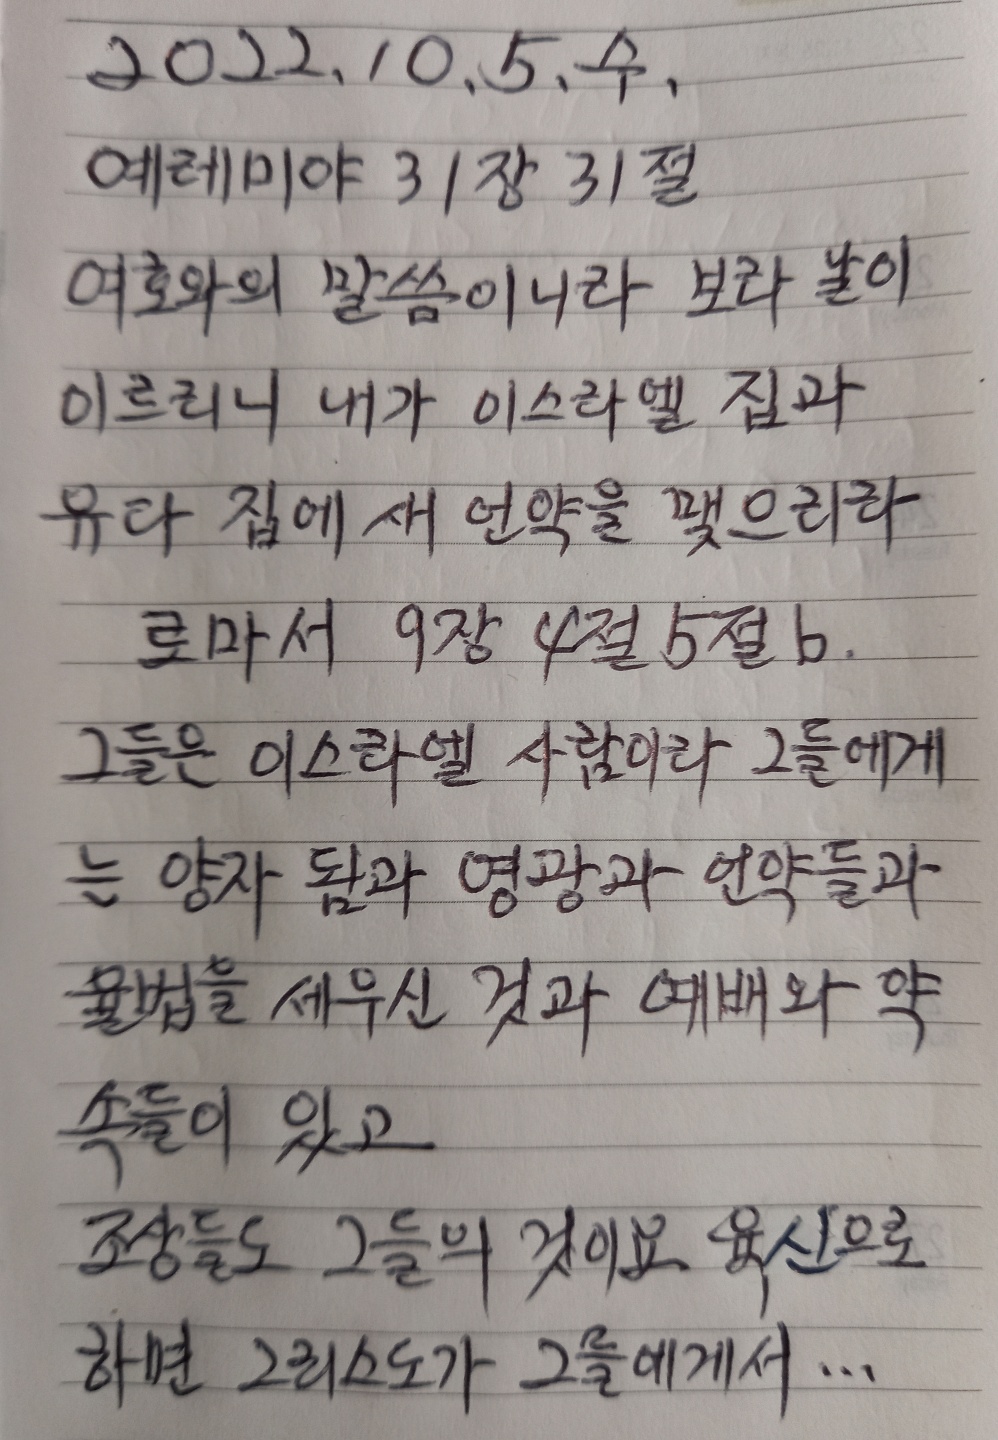 2022.10.5.수.
예레미야 31장 31절
여호와의 말씀이니라 보라 날이
이르리니 내가 이스라엘 집과
유다 집에 새 언약을 맺으리라
로마서 9장 4절 5절 b.
그들은 이스라엘 사람이라 그들에게
는 양자 됨과 영광과 언약들과
율법을 세우신 것과 예배와 약
속들이 있고
조상들도 그들의 것이요 육신으로
하면 그리스도가 그들에게서...